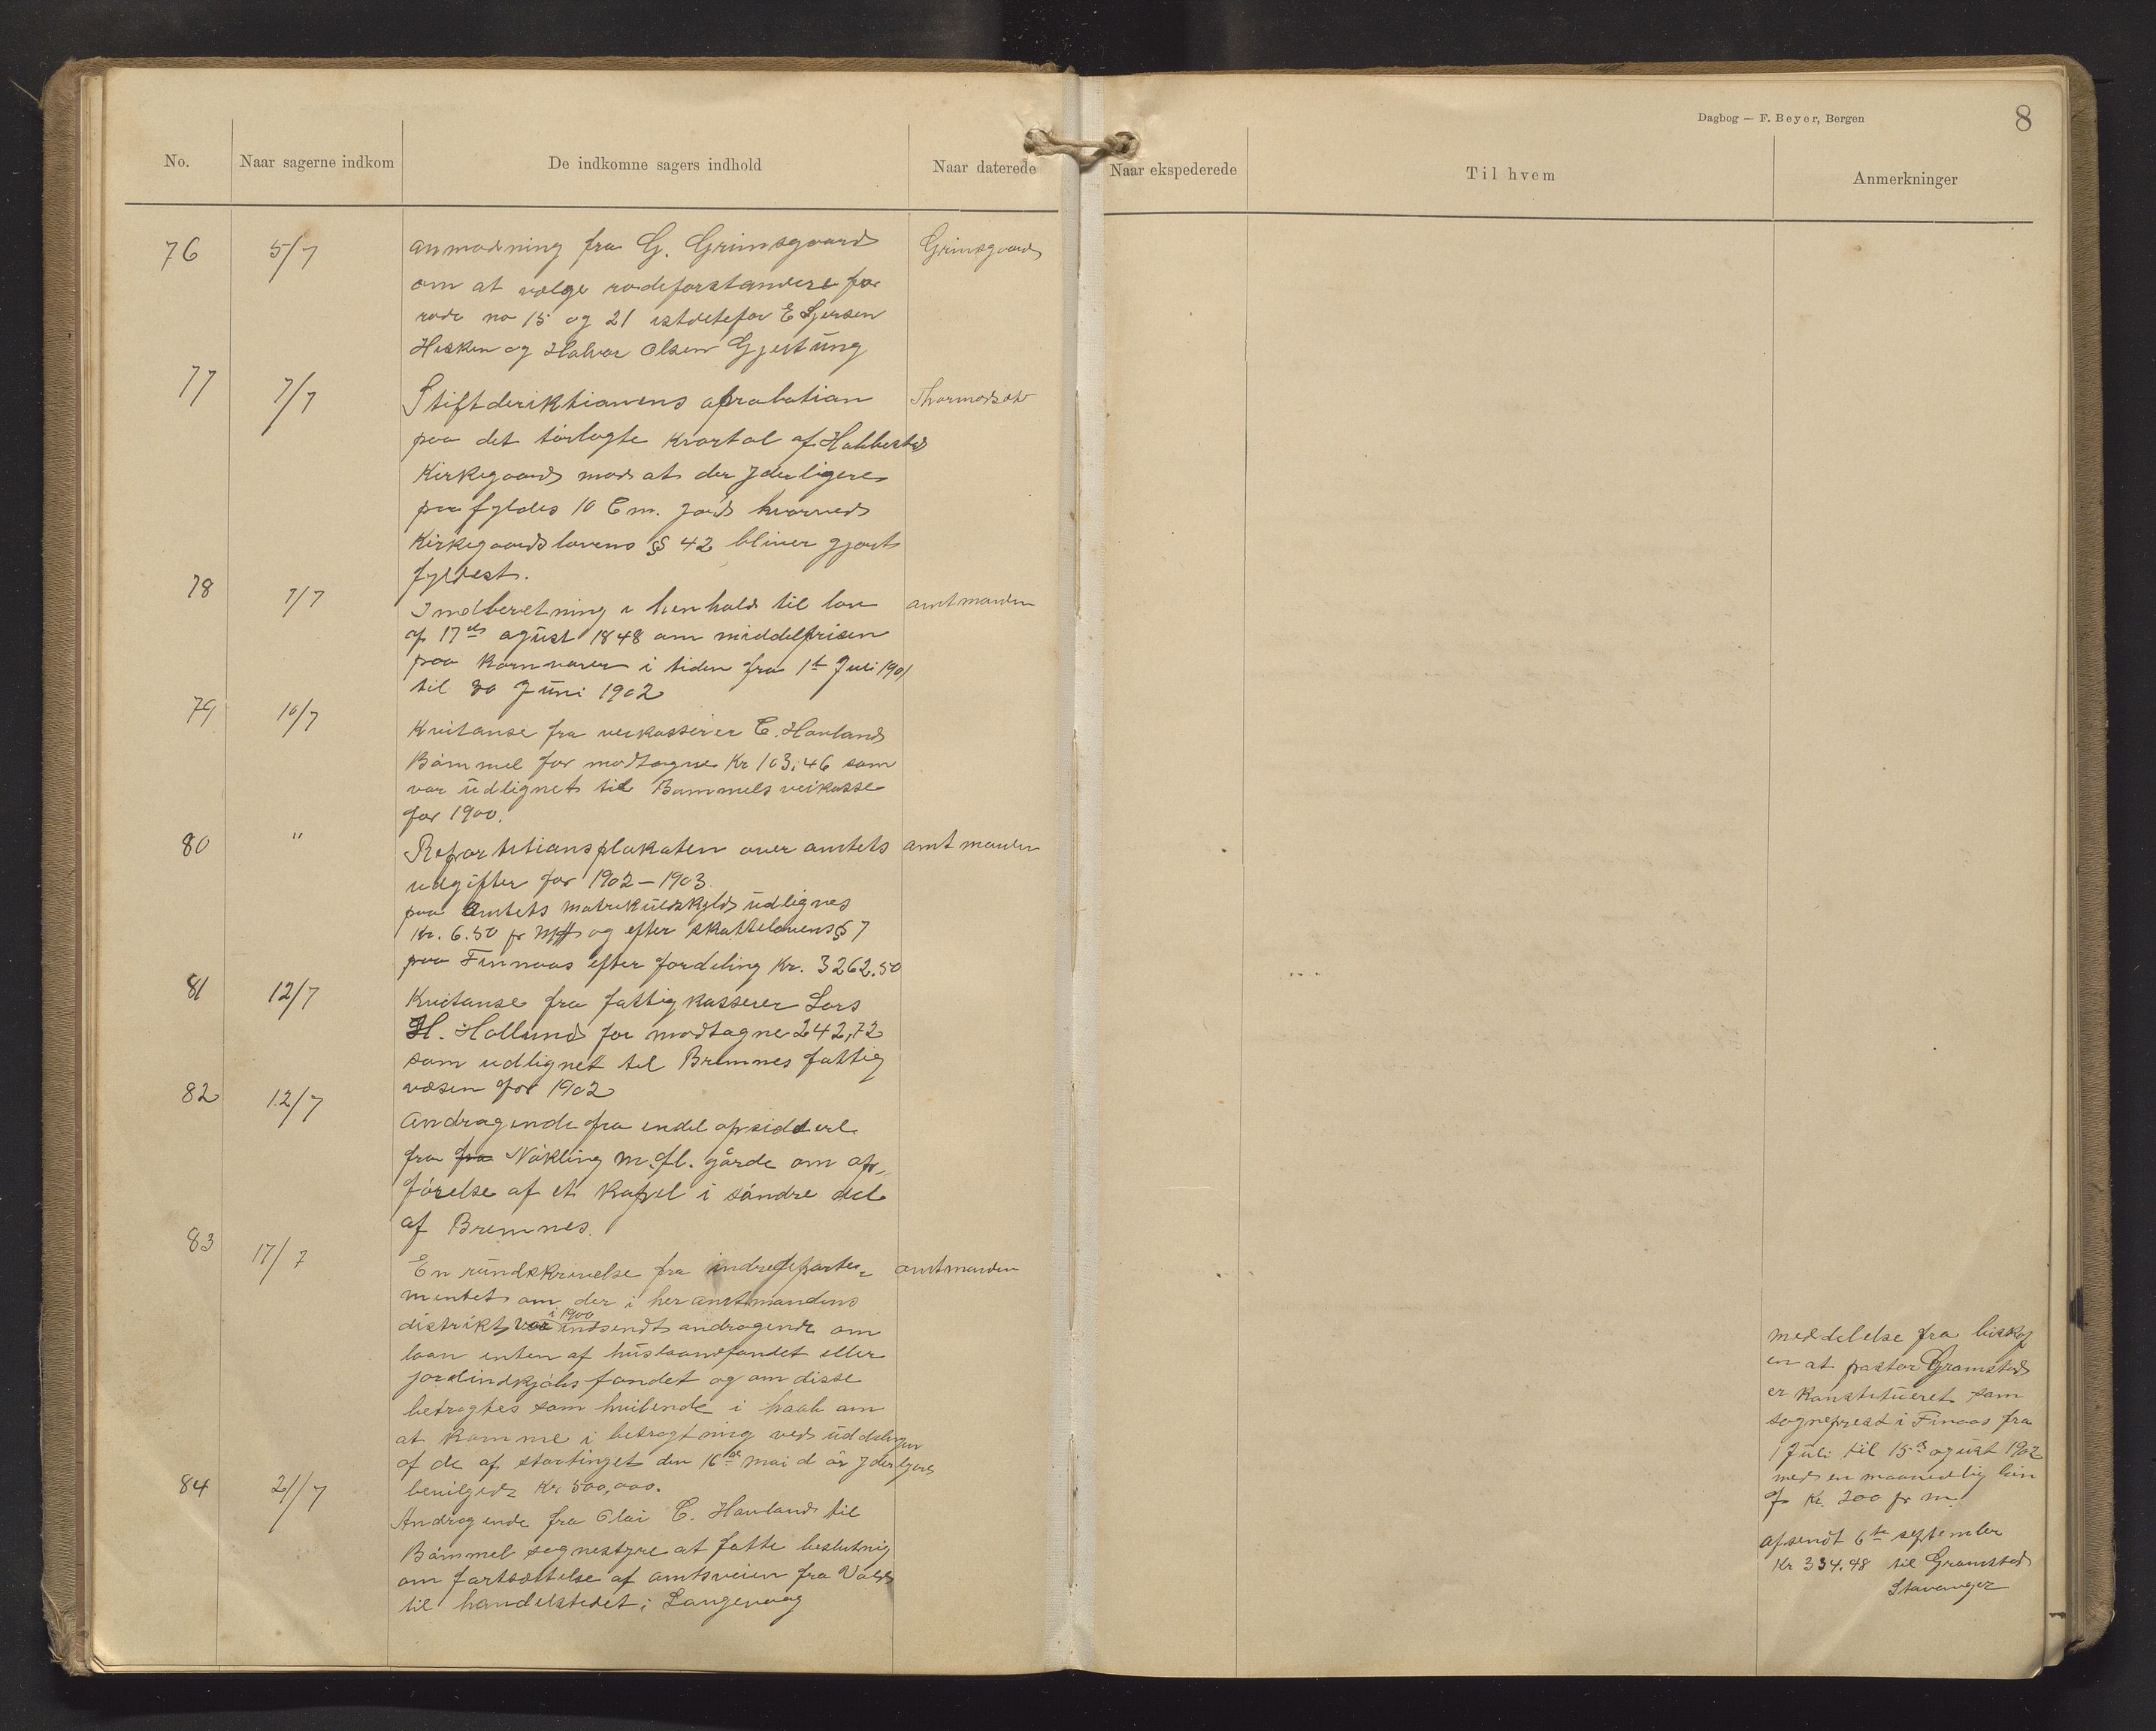 Dagbog — F. Beyer, Bergen
8
No.
Naar sagerne indkom
De indkomne sagers indhold
Naar daterede
Naar ekspederede
Til hvem
Anmerkninger
76 5/7 anmodning fra G. Grimsgaard Grimsgaard
om at vælge rodeforstandere for
rode no 15 og 21 istdetefor E Sjursen
Hisken og Halvor Olsen Gjestüng
77 7/7 Stiftderiktionens aprobation Thormodsæt
paa det tørlagte kvartal af Habbestad
Kirkegaard mod at der Jderligere
paafyldes 10 Cm. jord hvorved
Kirkegaardslovens § 42 bliver gjort
fyldest.
78 7/7 Indberetning i henhold til lov amtmanden
af 17de agüst 1848 om middelprisen
paa kornvarer i tiden fra 1ste Juli 1901
til 30 Jüni 1902
79 10/7 Kvitanse fra veikasserer C. Havland
Bømmel for modtagne Kr 103,46 som
var üdlignet til Bommels veikasse
for 1900.
80 " Repartitiansplakaten over amtets amtmanden
udgifter for 1902 — 1903
paa Amtets matrikülskyld üdlignes
Kr. 6.50 pr og efter skattelovens § 7
paa Finnaas efter fordeling Kr. 3262.50
81 12/7 Kvitanse fra fattigkasserer Lars
H. Hollund for modtagne 242,72
som udlignet til Bremnes fattig
væsen for 1902
82 12/7 Andragende fra endel opsiddere
fra fra Nøkling m.fl. gårde om op-
førelse af et kapel i søndre del
af Bremnes.
83 17/7 En ründskrivelse fra indredeparte= amtmanden
mentet om der i her amtmandens
i 1900
distrikt var indsendt andragende om
laan enten af hüslaanfondet eller
jordindkjøbsfondet og om disse
betragtes som hvilende i haab om
at komme i betragtning ved üddelingen
af de af stortinget den 16de mai d år Jderligere
bevilgede Kr 500,000.
84 21/7 Andragende fra Olai C. Havland til
Bømmel sognestyre at fatte beslutnig
om fortsættelse af amtsveien fra Vold
til handelstedet i Langevaag
meddelelse fra biskop
en at pastor Gramstad
er konstitüeret som
sogneprest i Finaas fra
1 Jüli til 15de agüst 1902
med en maanedlig løn
af Kr. 200 pr m.
afsendt 6te september
Kr 334.48 til Gramstad
Stavanger